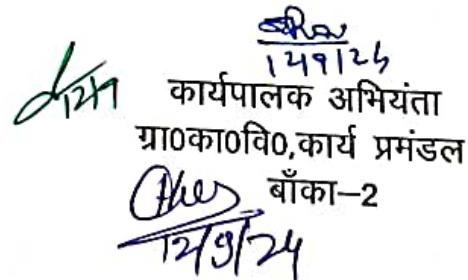 12/9/24
12/9
कार्यपालक अभियंता
ग्रा0का0वि0,कार्य प्रमंडल
बाँका-2
12/9/24